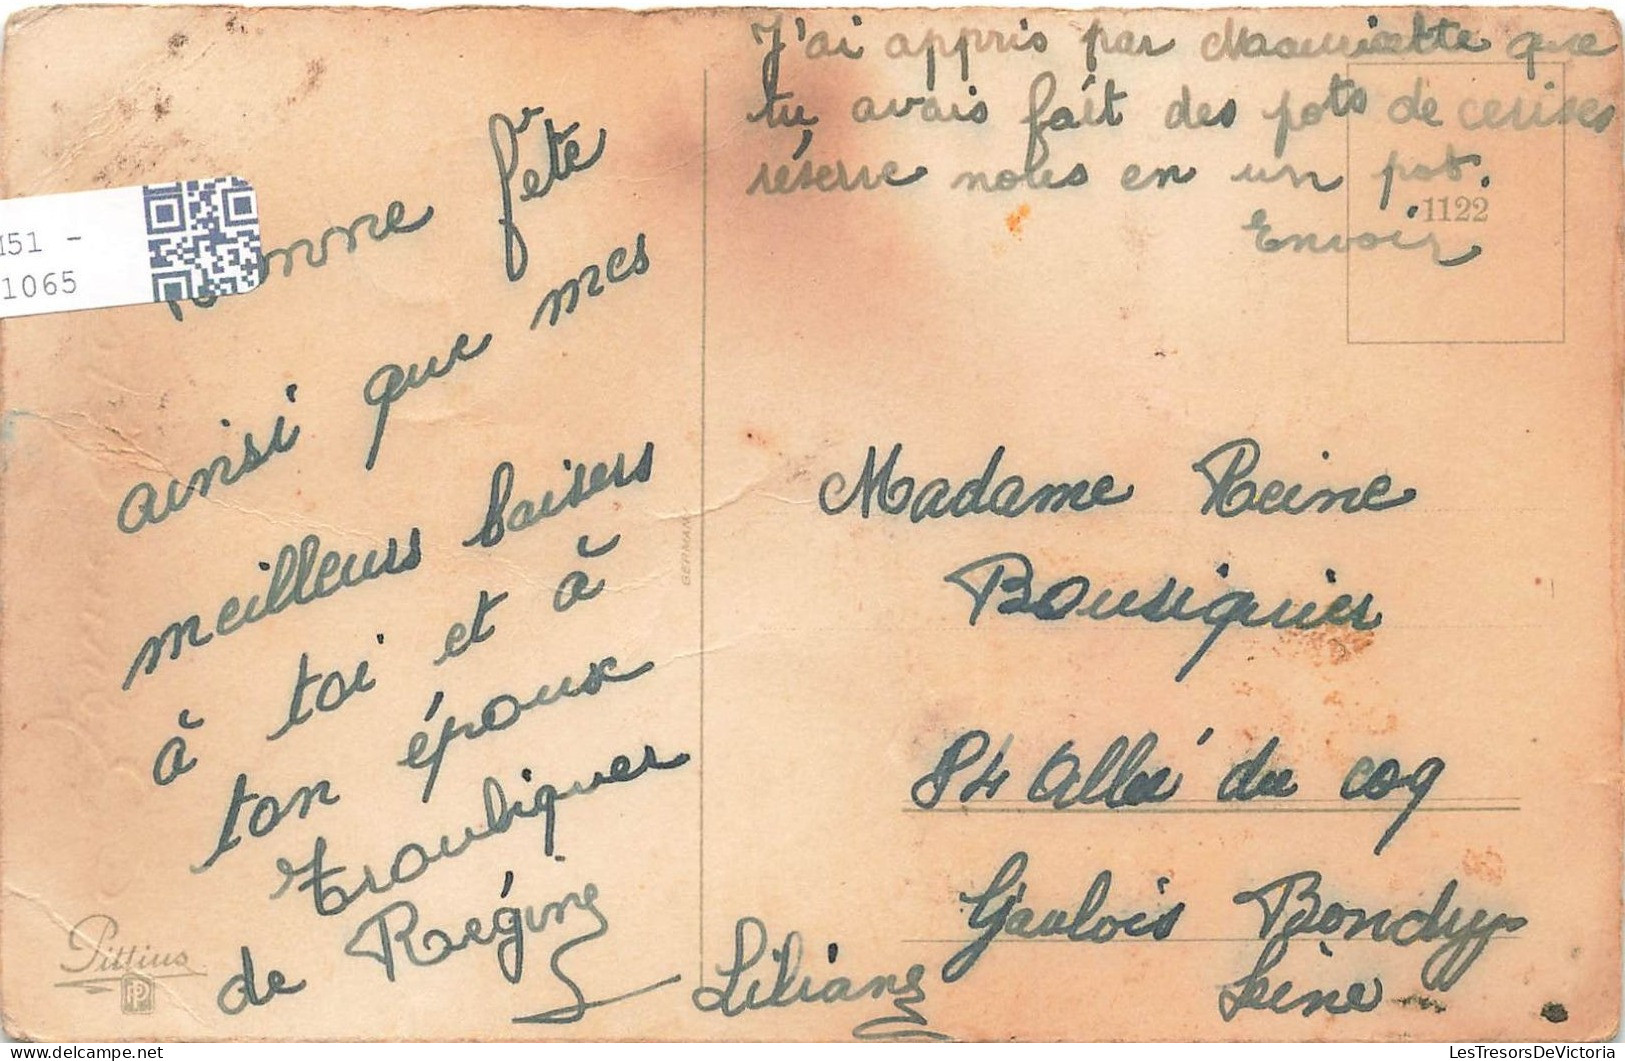 J'ai appris par Mauricette que
tu avais fait des pots de cerises
réserve nous en un pot.
1122
Envoir
fête
ainsi que mes
meilleurs baisers
à toi et à
ton époux
de Régine
Liliane
Pittius
PP
GERMANY
Madame Reine
Bousiquier
84 Allée du coq
Gaulois Bondy
Seine
M51 -
1065
www.LesTresorsDeVictoria.com